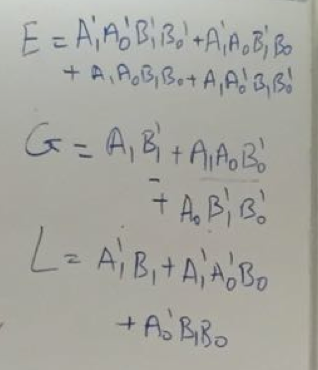 E = A₁'A₀'B₁'B₀' + A₁'A₀B₁'B₀
+ A₁A₀B₁B₀ + A₁A₀'B₁B₀'
G = A₁B₁' + A₁A₀B₀'
+ A₀B₁'B₀'
L = A₁'B₁ + A₁'A₀'B₀
+ A₀'B₁B₀